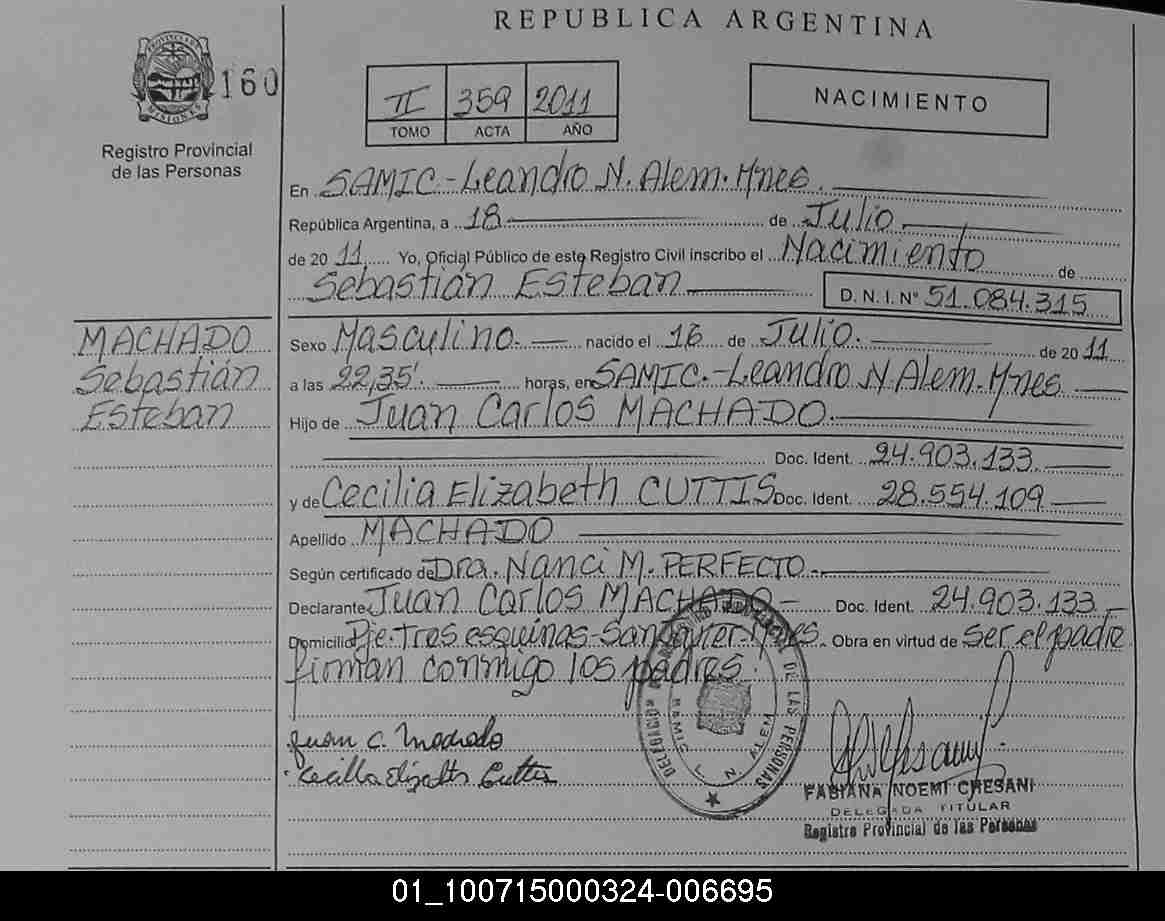 REPUBLICA ARGENTINA
PROVINCIA DE
MISIONES
160
Registro Provincial
de las Personas
II 359 2011
TOMO ACTA AÑO
NACIMIENTO
En SAMIC.-Leandro N. Alem.Mnes.
República Argentina, a 18 de Julio
de 2011 Yo, Oficial Público de este Registro Civil inscribo el Nacimiento de
Sebastián Esteban D. N. I. Nº 51.084.315
MACHADO
Sebastián
Esteban
Sexo Masculino. nacido el 16 de Julio. de 2011
a las 22,35'. horas, en SAMIC.-Leandro N Alem.Mnes
Hijo de Juan Carlos MACHADO.
Doc. Ident. 24.903.133
y de Cecilia Elizabeth CUTTIS Doc. Ident. 28.554.109
Apellido MACHADO
Según certificado de Dra. Nanci M. PERFECTO.
Declarante Juan Carlos MACHADO- Doc. Ident. 24.903.133
Domicilio Pje.Tres esquinas- Mnes. Obra en virtud de ser el padre
firman conmigo los padres.
Juan C. Machado
Cecilia Elizabeth Cuttis
DELEGACION DE LAS PERSONAS
SAMIC L. N. ALEM
FABIANA NOEMI CHESANI
DELEGADA TITULAR
Registro Provincial de las Personas
01_100715000324-006695